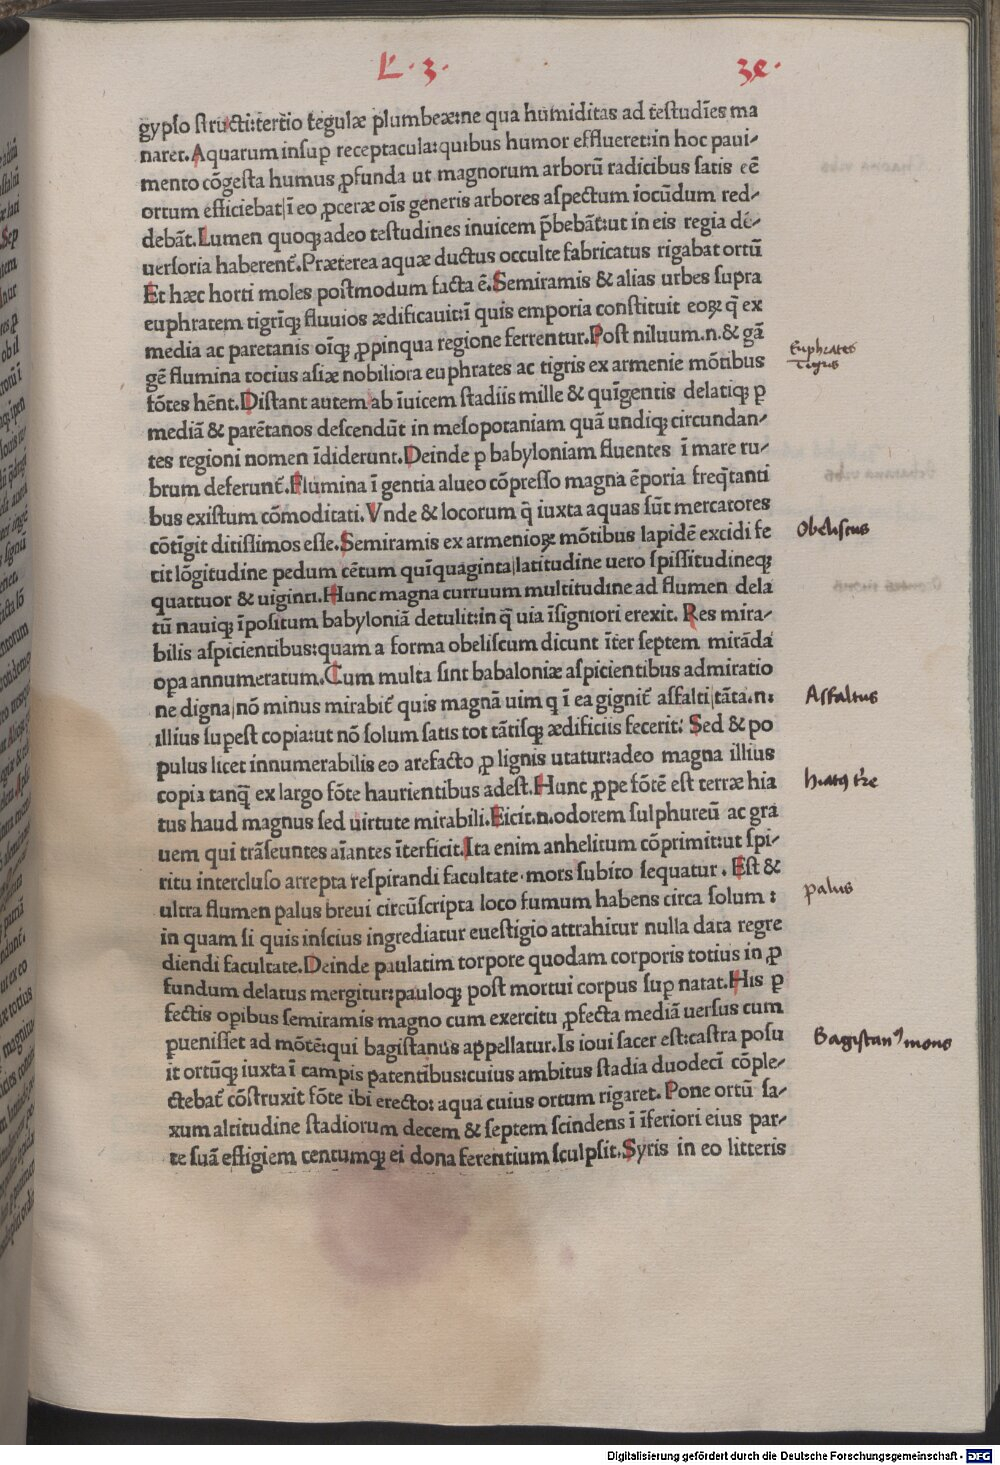 L. 3. 3e.
gypso structi:tertio tegulæ plumbeæ:ne qua humiditas ad testudīes ma
naret. Aquarum insup receptacula:quibus humor efflueret:in hoc paui-
mento cōgesta humus ꝓfunda ut magnorum arborū radicibus satis eē
ortum efficiebat|ī eo ꝓceræ oīs generis arbores aspectum iocūdum red-
debāt. Lumen quoqꝫ adeo testudines inuicem p̄bebāt:ut in eis regia dé-
uersoria haberent̄. Præterea aquæ ductus occulte fabricatus rigabat ortū
Et hæc horti moles postmodum facta ē. Semiramis & alias urbes supra
euphratem tigrīqꝫ fluuios ædificauit:ī quis emporia constituit eoꝝ q̄ ex
media ac paretanis oīqꝫ ꝓpinqua regione ferrentur. Post niluum.n.& gā
gē flumina totius asiæ nobiliora euphrates ac tigris ex armenie mōtibus
Euphrates
Tigris
fōtes hēnt. Distant autem ab īuicem stadiis mille & quīgentis delatiqꝫ ꝑ
mediā & parētanos descendūt in mesopotaniam quā undiqꝫ circundan-
tes regioni nomen īdiderunt. Deinde ꝑ babyloniam fluentes ī mare ru-
brum deferunt̄. Flumina ī gentia alueo cōpresso magna ēporia freq̄tanti
bus existum cōmoditati. Vnde & locorum q̄ iuxta aquas sūt mercatores
cōtīgit ditissimos esse. Semiramis ex armenioꝝ mōtibus lapidē excidi fe
Obeliscus
cit lōgitudine pedum cētum quīquaginta|latitudine uero spissitudineqꝫ
quattuor & uiginti. Hunc magna curruum multitudine ad flumen dela
tū nauiqꝫ īpositum babyloniā detulit:in q̄ uia īsigniori erexit. Res mira-
bilis aspicientibus:quam a forma obeliscum dicunt īter septem mirāda
oꝑa annumeratum. Cum multa sint babaloniæ aspicientibus admiratio
ne digna|nō minus mirabit̄ quis magnā uim q ī ea gignit̄ asfalti|tāta.n:
Asfaltus
illius supest copia:ut nō solum satis tot tātisqꝫ ædificiis fecerit: Sed & po
pulus licet innumerabilis eo arefacto ꝓ lignis utatur:adeo magna illius
copia tanq̄ ex largo fōte haurientibus adest. Hunc ꝓpe fōtē est terræ hia
hiatꝰ tre
tus haud magnus sed uirtute mirabili. Eicit.n.odorem sulphureū ac gra
uem qui trāseuntes aīantes īterficit. Ita enim anhelitum cōprimit:ut spi-
ritu intercluso arrepta respirandi facultate· mors subito sequatur. Est &
ultra flumen palus breui circūscripta loco fumum habens circa solum :
palus
in quam si quis inscius ingrediatur euestigio attrahitur nulla data regre
diendi facultate. Deinde paulatim torpore quodam corporis totius in ꝓ
fundum delatus mergitur:pauloqꝫ post mortui corpus suꝑ natat. His ꝑ
fectis opibus semiramis magno cum exercitu ꝓfecta mediā uersus cum
ꝑuenisset ad mōtē:qui bagistanus appellatur. Is ioui sacer est:castra posu
Bagistanꝰ mons
it ortūqꝫ iuxta ī campis patentibus:cuius ambitus stadia duodecī cōple-
ctebat̄ cōstruxit fōte ibi erecto: aqua cuius ortum rigaret. Pone ortū sa-
xum altitudine stadiorum decem & septem scindens ī īferiori eius par-
te suā effigiem centumqꝫ ei dona ferentium sculpsit. Syris in eo litteris
Digitalisierung gefördert durch die Deutsche Forschungsgemeinschaft - DFG